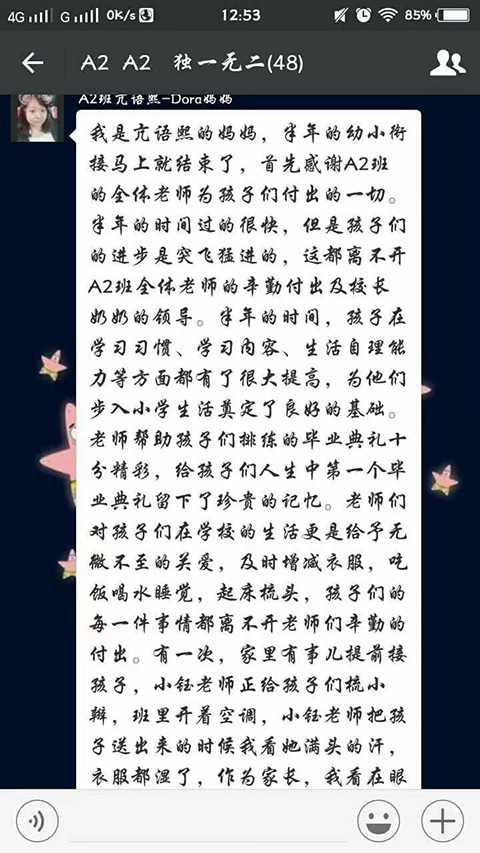 4G G 0K/s 12:53 85%
A2 A2 独一无二(48)
A2班亢语熙-Dora妈妈
我是亢语熙的妈妈，半年的幼小衔
接马上就结束了，首先感谢A2班
的全体老师为孩子们付出的一切。
半年的时间过的很快，但是孩子们
的进步是突飞猛进的，这都离不开
A2班全体老师的辛勤付出及校长
奶奶的领导。半年的时间，孩子在
学习习惯、学习内容、生活自理能
力等方面都有了很大提高，为他们
步入小学生活奠定了良好的基础。
老师帮助孩子们排练的毕业典礼十
分精彩，给孩子们人生中第一个毕
业典礼留下了珍贵的记忆。老师们
对孩子们在学校的生活更是给予无
微不至的关爱，及时增减衣服，吃
饭喝水睡觉，起床梳头，孩子们的
每一件事情都离不开老师们辛勤的
付出。有一次，家里有事儿提前接
孩子，小钰老师正给孩子们梳小
辫，班里开着空调，小钰老师把孩
子送出来的时候我看她满头的汗，
衣服都湿了，作为家长，我看在眼